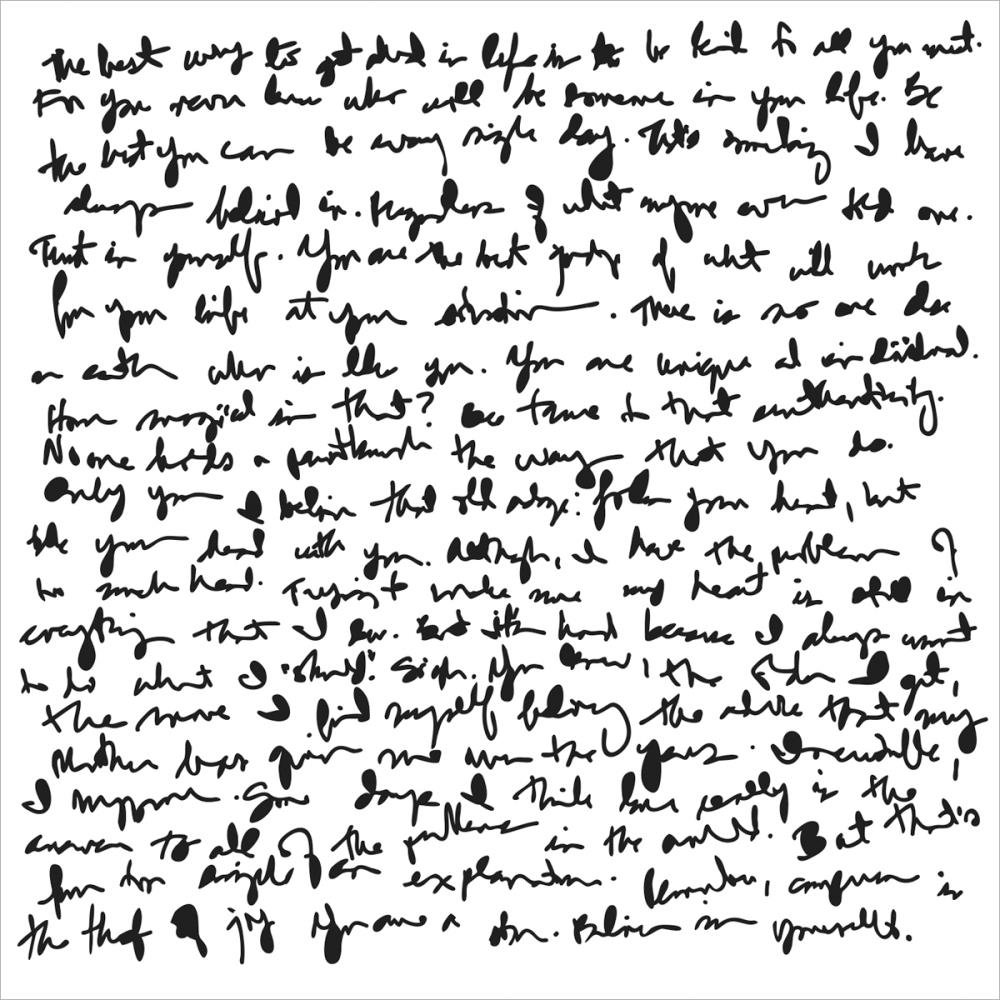 The best way to get ahead in life is to be kind to all you meet.
For you never know who will be someone in your life. Be
the best you can be every single day. That's something I have
always believed in. Regardless of what anyone ever told me.
Trust in yourself. You are the best judge of what will work
for your life at your. There is no one else
on earth who is like you. You are unique and individual.
How magical is that? Be true to that authenticity.
No one holds a paintbrush the way that you do.
Only you. I believe that old adage: follow your heart, but
take your head with you. Although, I have the problem of
too much head. Trying to make sure my heart is also in
everything that I do. But it's hard because I always want
to do what I "should". Sigh. You know, the older I get,
the more I find myself following the advice that my
Mother has given me over the years. Incredible,
I suppose. Some days I think love really is the
answer to all of the problems in the world. But that's
far too simple of an explanation. Remember, comparison is
the thief of joy. You are a star. Believe in yourself.